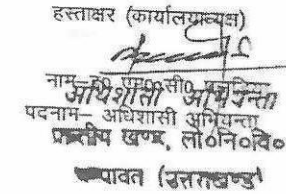 हस्ताक्षर (कार्यालयाध्यक्ष)
नाम– सी०
अधिशासी अभियन्ता
पदनाम– अधिशासी अभियन्ता
खण्ड, लो०नि०वि०
(उत्तराखण्ड)